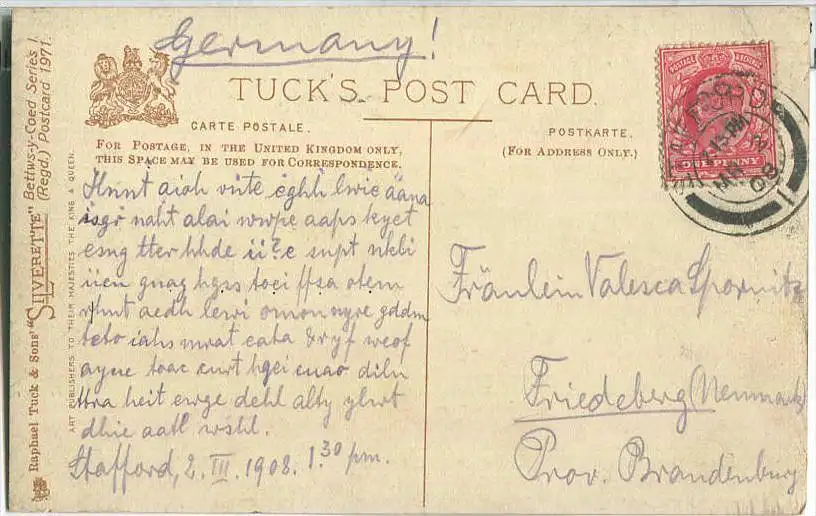 Germany!
TUCK'S POST CARD.
CARTE POSTALE.
POSTKARTE.
FOR POSTAGE, IN THE UNITED KINGDOM ONLY,
THIS SPACE MAY BE USED FOR CORRESPONDENCE.
(FOR ADDRESS ONLY.)
POSTAGE REVENUE
ONE PENNY
STAFFORD
7.15 PM
MR 2
08
Raphael Tuck & Sons' "SILVERETTE" Bettws-y-Coed Series I
(Regd.) Postcard 1971.
ART PUBLISHERS TO THEIR MAJESTIES THE KING & QUEEN.
aioh vnte eghh lwie äana
isgr naht alai wwpe aaps kyet
esng tter hhde snpt nkli
iien gnag hgss toei ffsa otem
rhnt aedh lewi omon nyre gddm
teto iahs mrat eata weof
ayne toac enrt hgei enao diln
ttra heit enge dehl alty
dhie aatl
Stafford, 2. III. 1908. 1.30 pm.
Fräulein Valesca Spornitz
Friedeberg (Neumark)
Prov. Brandenburg